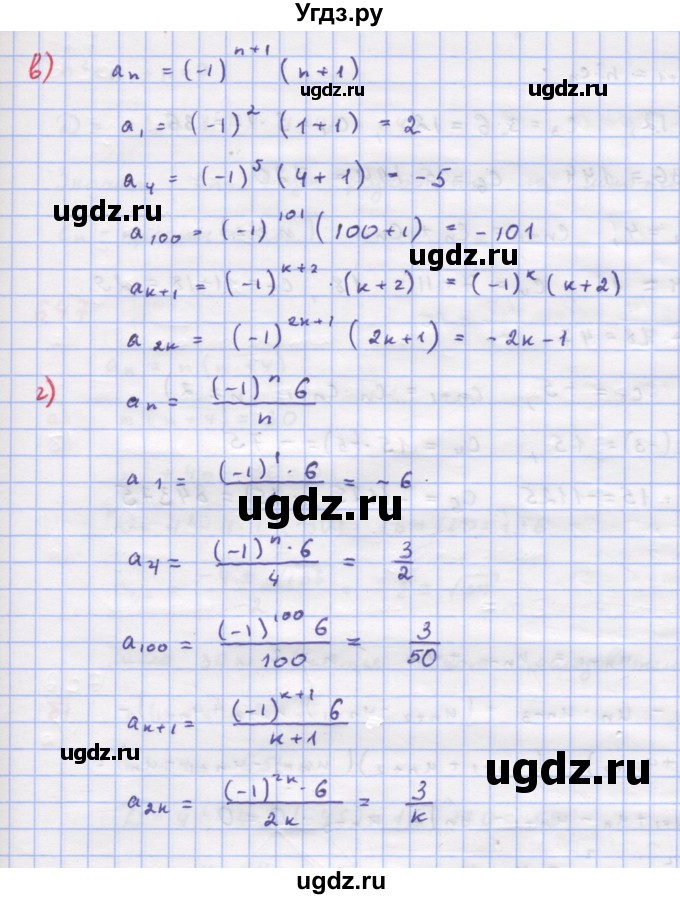 Угдз.ру
в) aₙ = (-1)ⁿ⁺¹ (n+1)
ugdz.ru
a₁ = (-1)² (1+1) = 2
a₄ = (-1)⁵ (4+1) = -5
ugdz.ru
a₁₀₀ = (-1)¹⁰¹ (100+1) = -101
ugdz.ru
aₖ₊₁ = (-1)ᵏ⁺² · (к+2) = (-1)ᵏ (к+2)
a₂ₖ = (-1)²ᵏ⁺¹ (2к+1) = -2к-1
ugdz.ru
г) aₙ = (-1)ⁿ 6 / n
a₁ = (-1)¹ · 6 / = -6
ugdz.ru
a₄ = (-1)ⁿ · 6 / 4 = 3/2
a₁₀₀ = (-1)¹⁰⁰ 6 / 100 = 3/50
aₖ₊₁ = (-1)ᵏ⁺¹ 6 / к+1
ugdz.ru
ugdz.ru
a₂ₖ = (-1)²ᵏ · 6 / 2к = 3/к
ugdz.ru